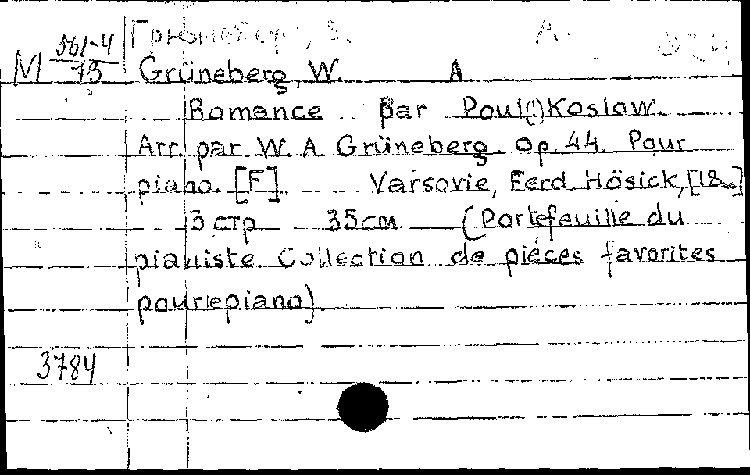 М 561-4
73
Grüneberg, W. A
Romance par Poul(!) Koslow.
Arr. par W. A Grüneberg. Op. 44. Pour
piano. [F]. Varsovie, Ferd. Hösick, [18..]
3 стр 35 см (Portefeuille du
pianiste Collection de pièces favorites
pour le piano).
3784